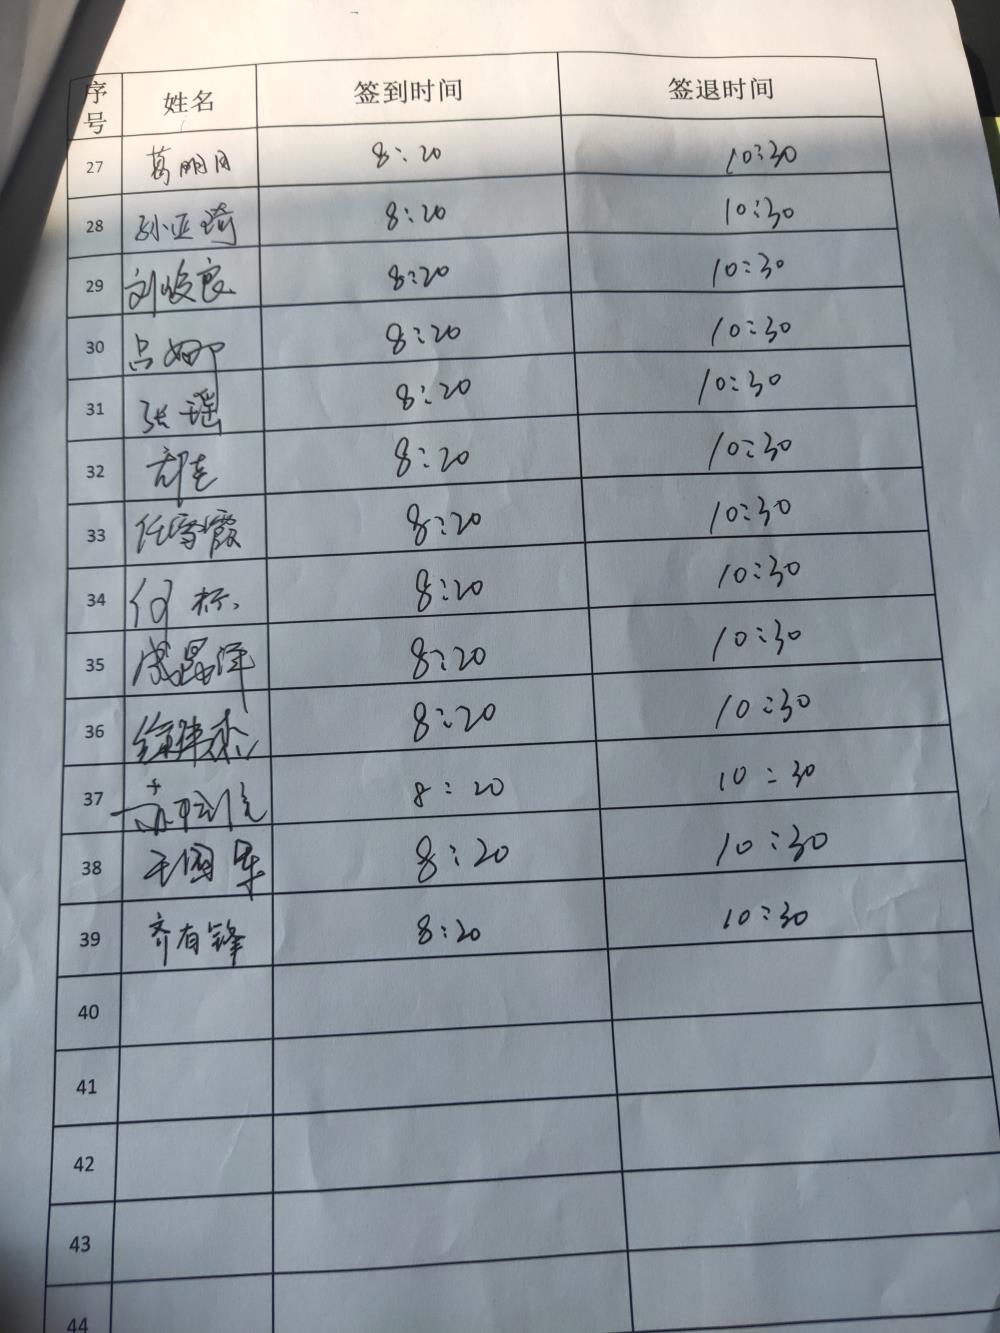 序号 姓名 签到时间 签退时间
27 葛明月 8:20 10:30
28 孙亚琦 8:20 10:30
29 刘俊良 8:20 10:30
30 吕娜 8:20 10:30
31 张瑶 8:20 10:30
32 8:20 10:30
33 任雪霞 8:20 10:30
34 何栋 8:20 10:30
35 8:20 10:30
36 8:20 10:30
37 8:20 10:30
38 王国军 8:20 10:30
39 齐有锋 8:20 10:30
40
41
42
43
44